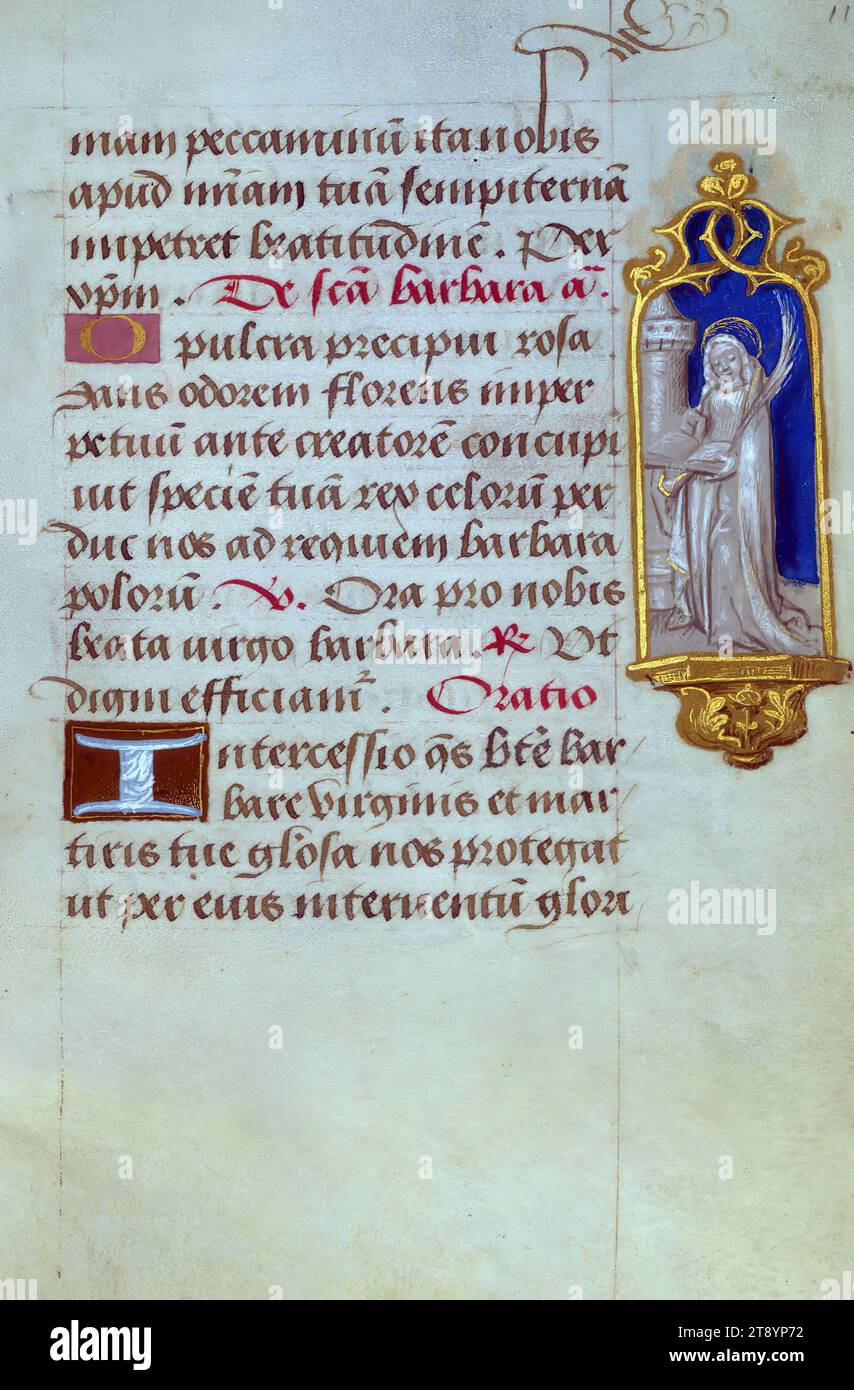 11
mam peccaminū ita nobis
apud m̄iam tuā sempiternā
impetret beatitudinē. Per
xp̄m. De scā barbara a͞.
O pulcra precipui rosa
dans odorem florens imper
petuū ante creatorē concupi
uit speciē tuā rex celorū per
duc nos ad requiem barbara
polorū. V. Ora pro nobis
beata uirgo barbara. R Ut
digni efficiam̄. Oratio
Intercessio q̄s bt̄e bar
bare virginis et mar
tiris tue gl'osa nos protegat
ut per eius interuentū glori
alamy
Image ID: 2T8YP72
www.alamy.com